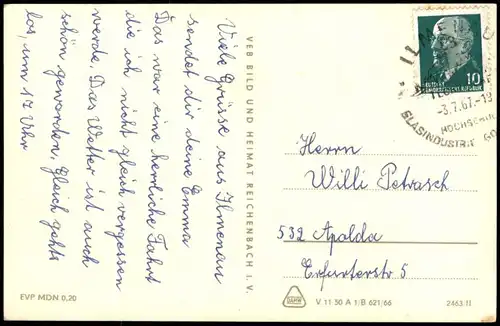 Viele Grüsse aus Ilmenau
sendet dir deine Emma
Das war eine herrliche Fahrt
die ich nicht gleich vergessen
werde. Das Wetter ist auch
schön geworden. Gleich gehts
los, um 17 Uhr
VEB BILD UND HEIMAT REICHENBACH I. V.
EVP MDN 0,20
10
DEUTSCHE
DEMOKRATISCHE REPUBLIK
ILME
-3.7.67.-19
HOCHSCHU
GLASINDUSTRIE
Herrn
Willi Petrasch
532 Apolda
Erfurterstr 5
V 11 50 A 1/B 621/66
2463 11